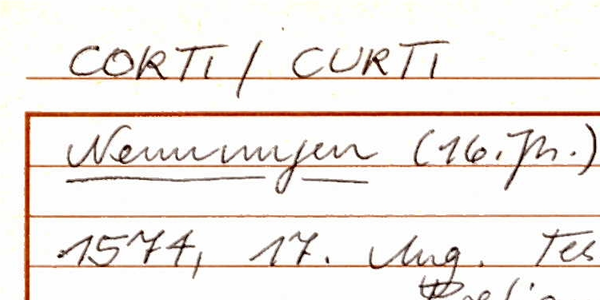 CORTI / CURTI
Nennungen (16. Jh.)
1574, 17. Aug. Tes